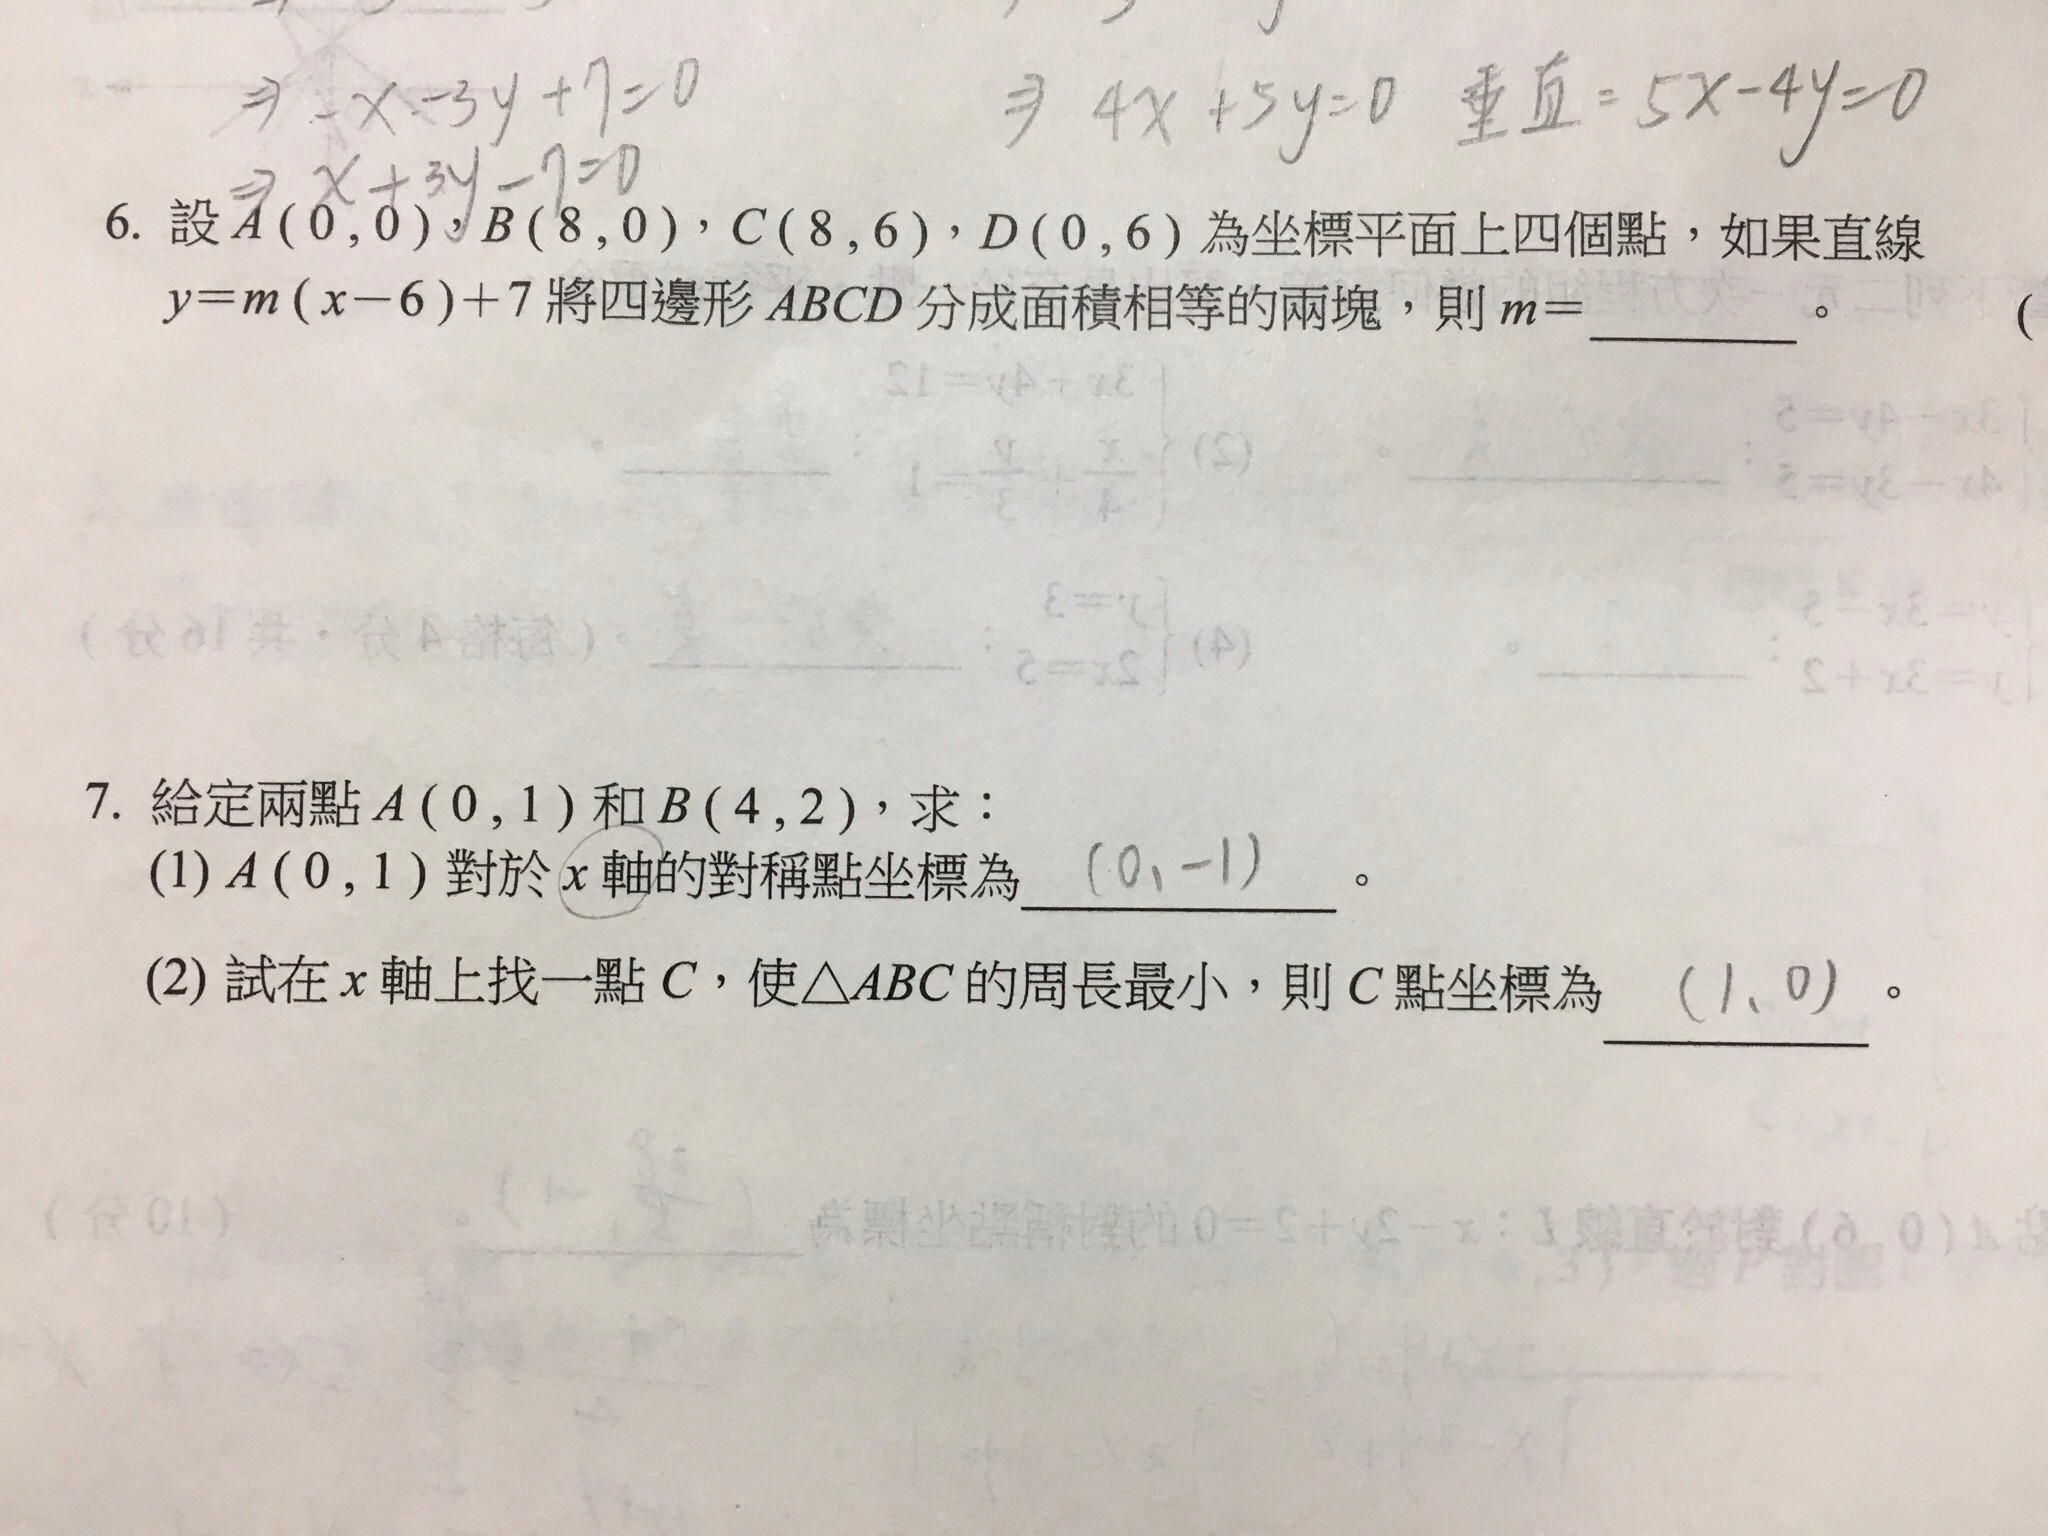 ⇒ -x-3y+7=0 ⇒ 4x+5y=0 垂直=5x-4y=0
⇒ x+3y-7=0
6. 設A(0,0),B(8,0),C(8,6),D(0,6)為坐標平面上四個點,如果直線
y=m(x-6)+7將四邊形ABCD分成面積相等的兩塊,則m=______。 (
7. 給定兩點A(0,1)和B(4,2),求:
(1) A(0,1)對於x軸的對稱點坐標為 (0,-1) 。
(2) 試在x軸上找一點C,使△ABC的周長最小,則C點坐標為 (1、0) 。